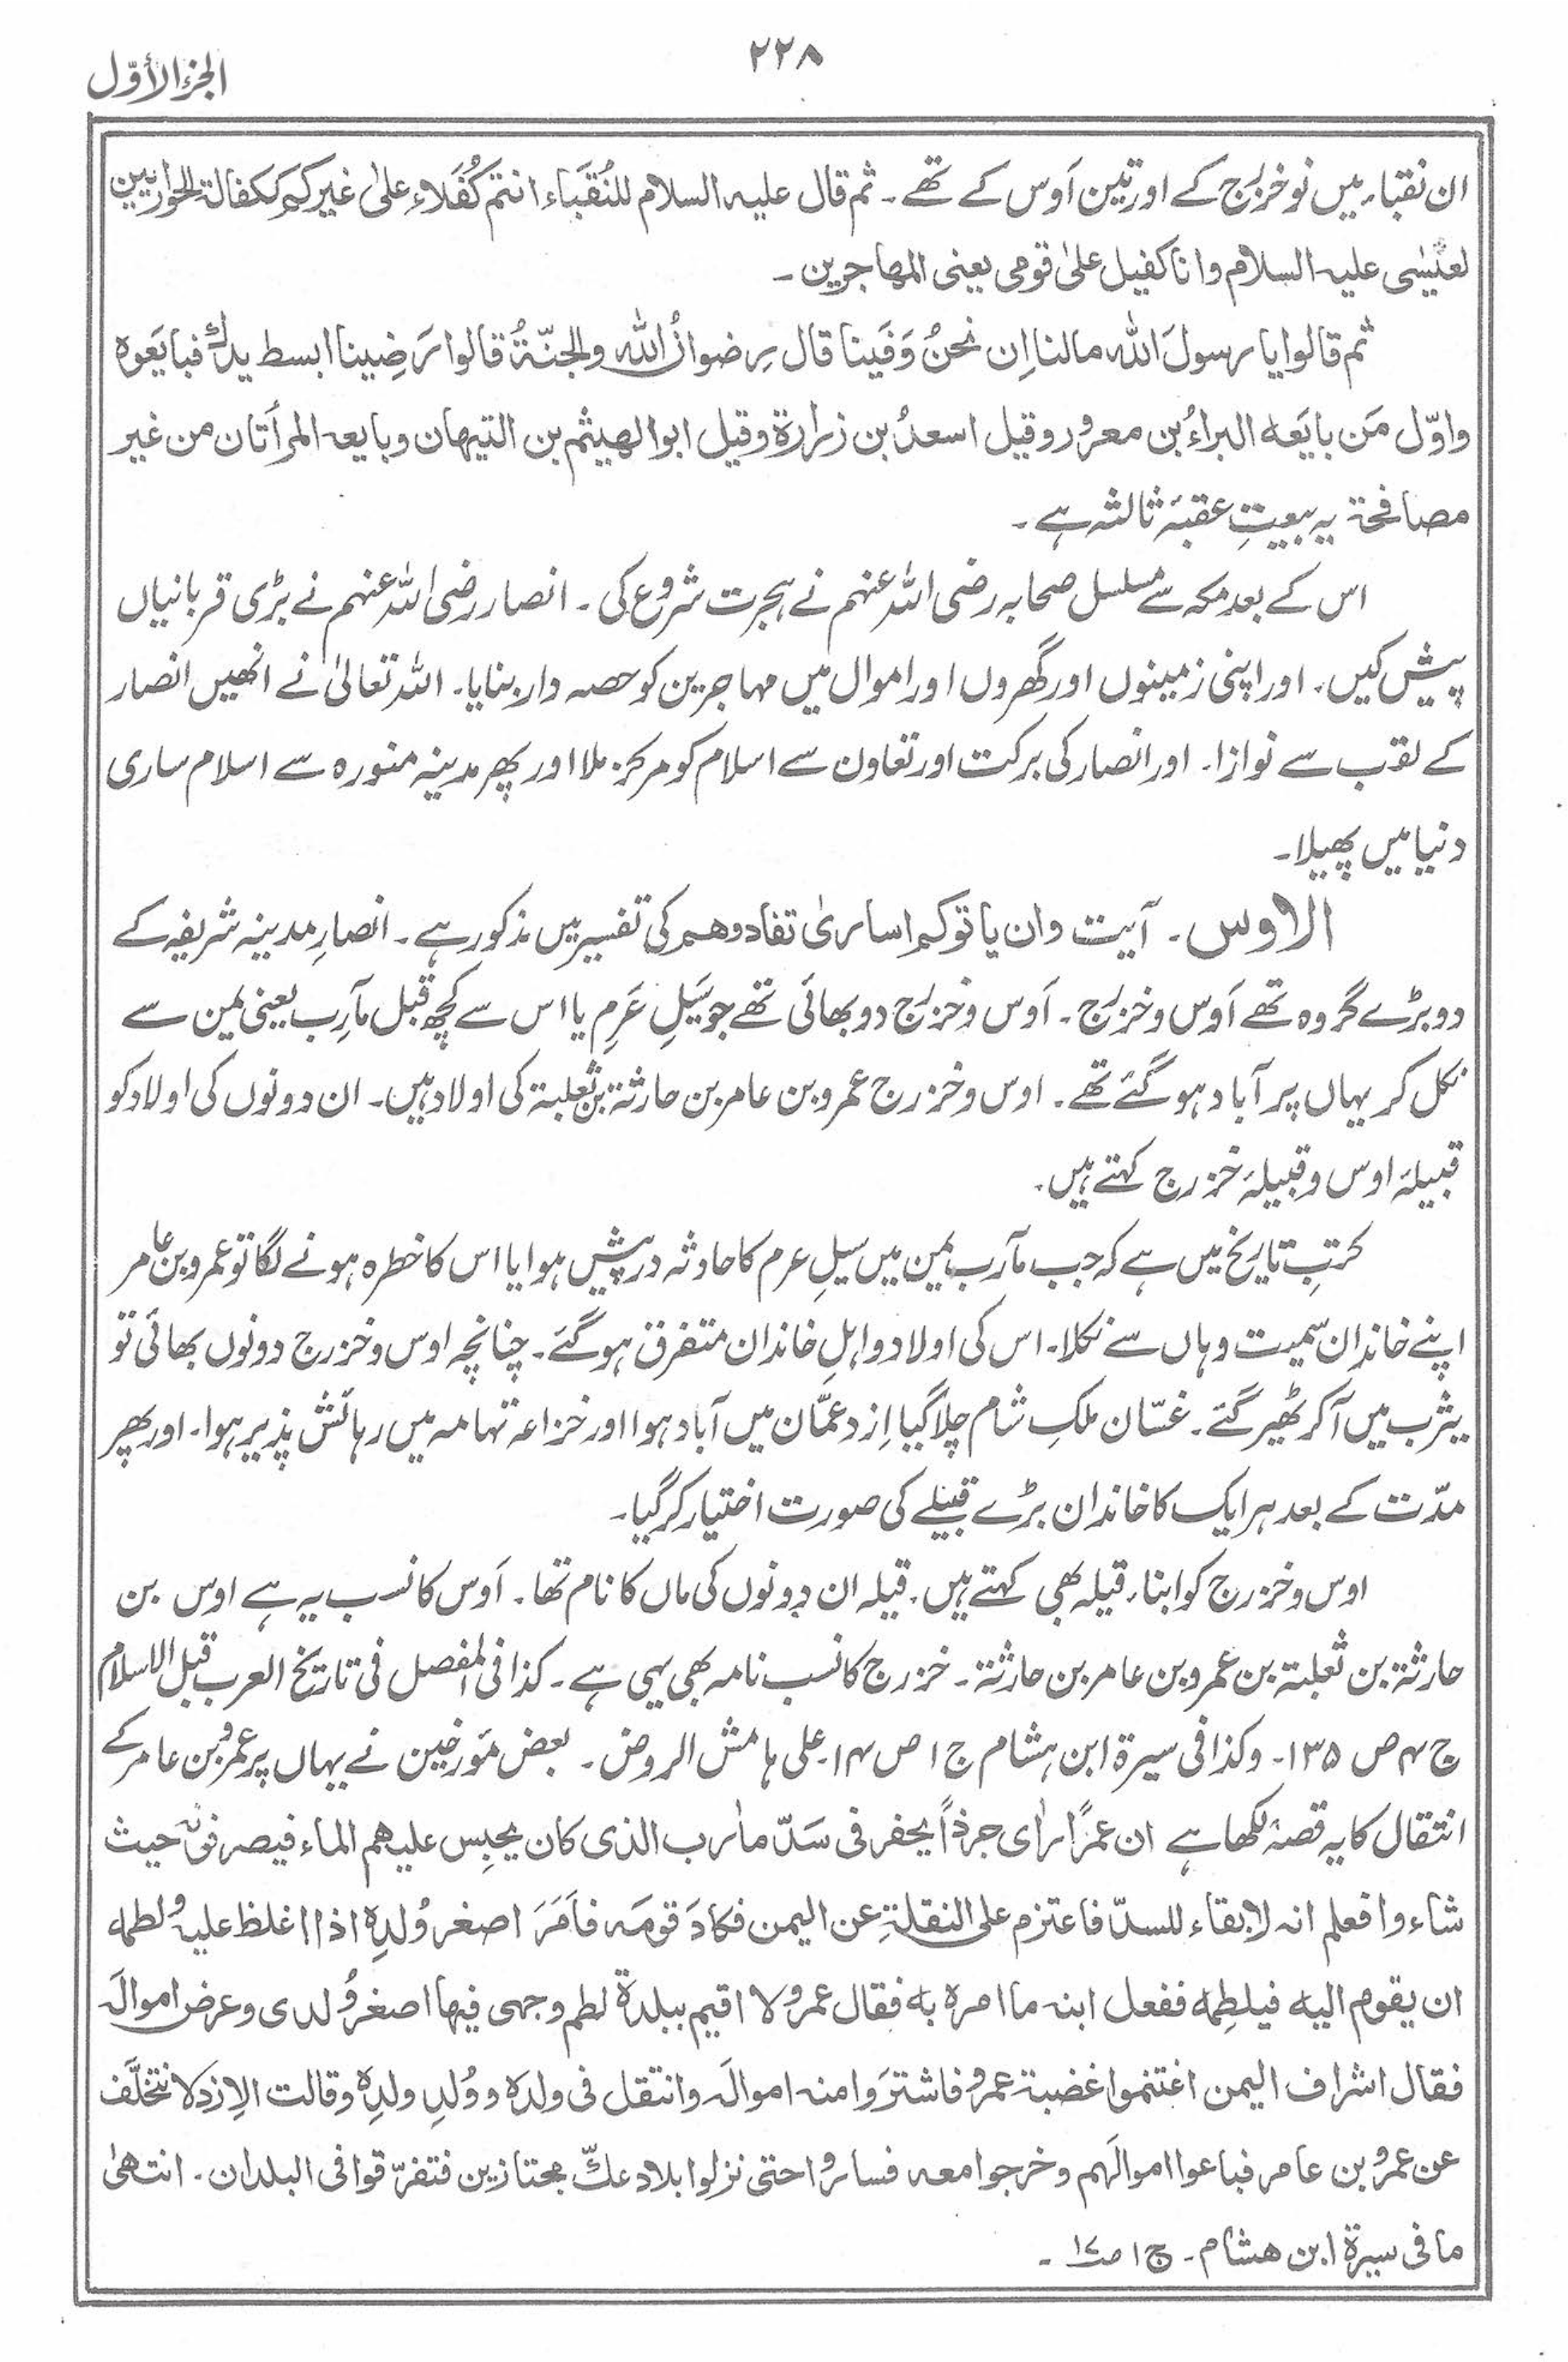 ۲۲۸
الجزء الأوّل
ان نقباء میں نو خزرَج کے اور تین اَوس کے تھے۔ ثم قال علیہ السلام للنُقَبَاء انتم کُفَلاء علیٰ غیرکم ککفالۃ الحواریین
لعیسٰی علیہ السلام وانا کفیل علیٰ قومی یعنی المہاجرین۔
ثم قالوا یا رسولَ اللہ مالنا اِن نحنُ وَفَینا قال رِضوانُ اللہ والجنّۃُ قالوا رَضِینا ابسط یدک فبایَعَوہ
واوّل مَن بایَعَہ البراءُ بن معرور وقیل اسعدُ بن زرارۃ وقیل ابوالہیثم بن التیہان وبایعہ المرأتان من غیر
مصافحۃ یہ بیعتِ عقبۂ ثالثہ ہے۔
اس کے بعد مکہ سے مسلسل صحابہ رضی اللہ عنہم نے ہجرت شروع کی۔ انصار رضی اللہ عنہم نے بڑی قربانیاں
پیش کیں۔ اور اپنی زمینوں اور گھروں اور اموال میں مہاجرین کو حصہ دار بنایا۔ اللہ تعالیٰ نے انھیں انصار
کے لقب سے نوازا۔ اور انصار کی برکت اور تعاون سے اسلام کو مرکز ملا اور پھر مدینہ منورہ سے اسلام ساری
دنیا میں پھیلا۔
الاوس۔ آیت وان یاتوکم اساریٰ تفادوھم کی تفسیر میں مذکور ہے۔ انصارِ مدینہ شریفہ کے
دو بڑے گروہ تھے اَوس و خزرَج۔ اَوس و خزرَج دو بھائی تھے جو سَیلِ عَرِم یا اس سے کچھ قبل مآرِب یعنی یمن سے
نکل کر یہاں پر آباد ہو گئے تھے۔ اوس و خزرج عمرو بن عامر بن حارثۃ بن ثعلبۃ کی اولاد ہیں۔ ان دونوں کی اولاد کو
قبیلۂ اوس و قبیلۂ خزرج کہتے ہیں۔
کتبِ تاریخ میں ہے کہ جب مآرب یمن میں سیلِ عرم کا حادثہ درپیش ہوا یا اس کا خطرہ ہونے لگا تو عمرو بن عامر
اپنے خاندان سمیت وہاں سے نکلا۔ اس کی اولاد و اہلِ خاندان متفرق ہو گئے۔ چنانچہ اوس و خزرج دونوں بھائی تو
یثرب میں آکر ٹھیر گئے۔ غسّان ملکِ شام چلا گیا اِزد عمّان میں آباد ہوا اور خزاعہ تہامہ میں رہائش پذیر ہوا۔ اور پھر
مدّت کے بعد ہر ایک کا خاندان بڑے قبیلے کی صورت اختیار کر گیا۔
اوس و خزرج کو ابناء قیلہ بھی کہتے ہیں۔ قیلہ ان دونوں کی ماں کا نام تھا۔ اَوس کا نسب یہ ہے اوس بن
حارثۃ بن ثعلبۃ بن عمرو بن عامر بن حارثۃ۔ خزرج کا نسب نامہ بھی یہی ہے۔ کذا فی المفصل فی تاریخ العرب قبل الاسلام
ج ۴ ص ۱۳۵۔ وکذا فی سیرۃ ابن ہشام ج ۱ ص ۱۴۔ علی ہامش الروض۔ بعض مؤرخین نے یہاں پر عمرو بن عامر کے
انتقال کا یہ قصہ لکھا ہے ان عمرًا رأی جرذًا یحفر فی سَدّ مأرب الذی کان یحبِس علیہم الماء فیصرفونہ حیث
شاءوا فعلم انہ لا بقاء للسدّ فاعتزم علی النقلۃِ عن الیمن فکادَ قومَہ فاَمَرَ اصغر وُلدِہ اذا اغلظ علیہ ولطمہ
ان یقوم الیہ فیلطِمہ ففعل ابنہ ما امرہ بہ فقال عمرو لا اقیم ببلدۃ لطم وجہی فیہا اصغر وُلدی وعرض اموالَہ
فقال اشراف الیمن اغتنموا غضبۃ عمرو فاشترَوا منہ اموالَہ وانتقل فی ولدہ و وُلدِ ولدِہ وقالت الاِزد لا نتخلَّف
عن عمرو بن عامر فباعوا اموالَہم وخرجوا معہ فساروا حتی نزلوا بلاد عکّ مجتازین فتفرّقوا فی البلدان۔ انتھیٰ
ما فی سیرۃ ابن ھشام۔ ج ۱ ص۱۷۔